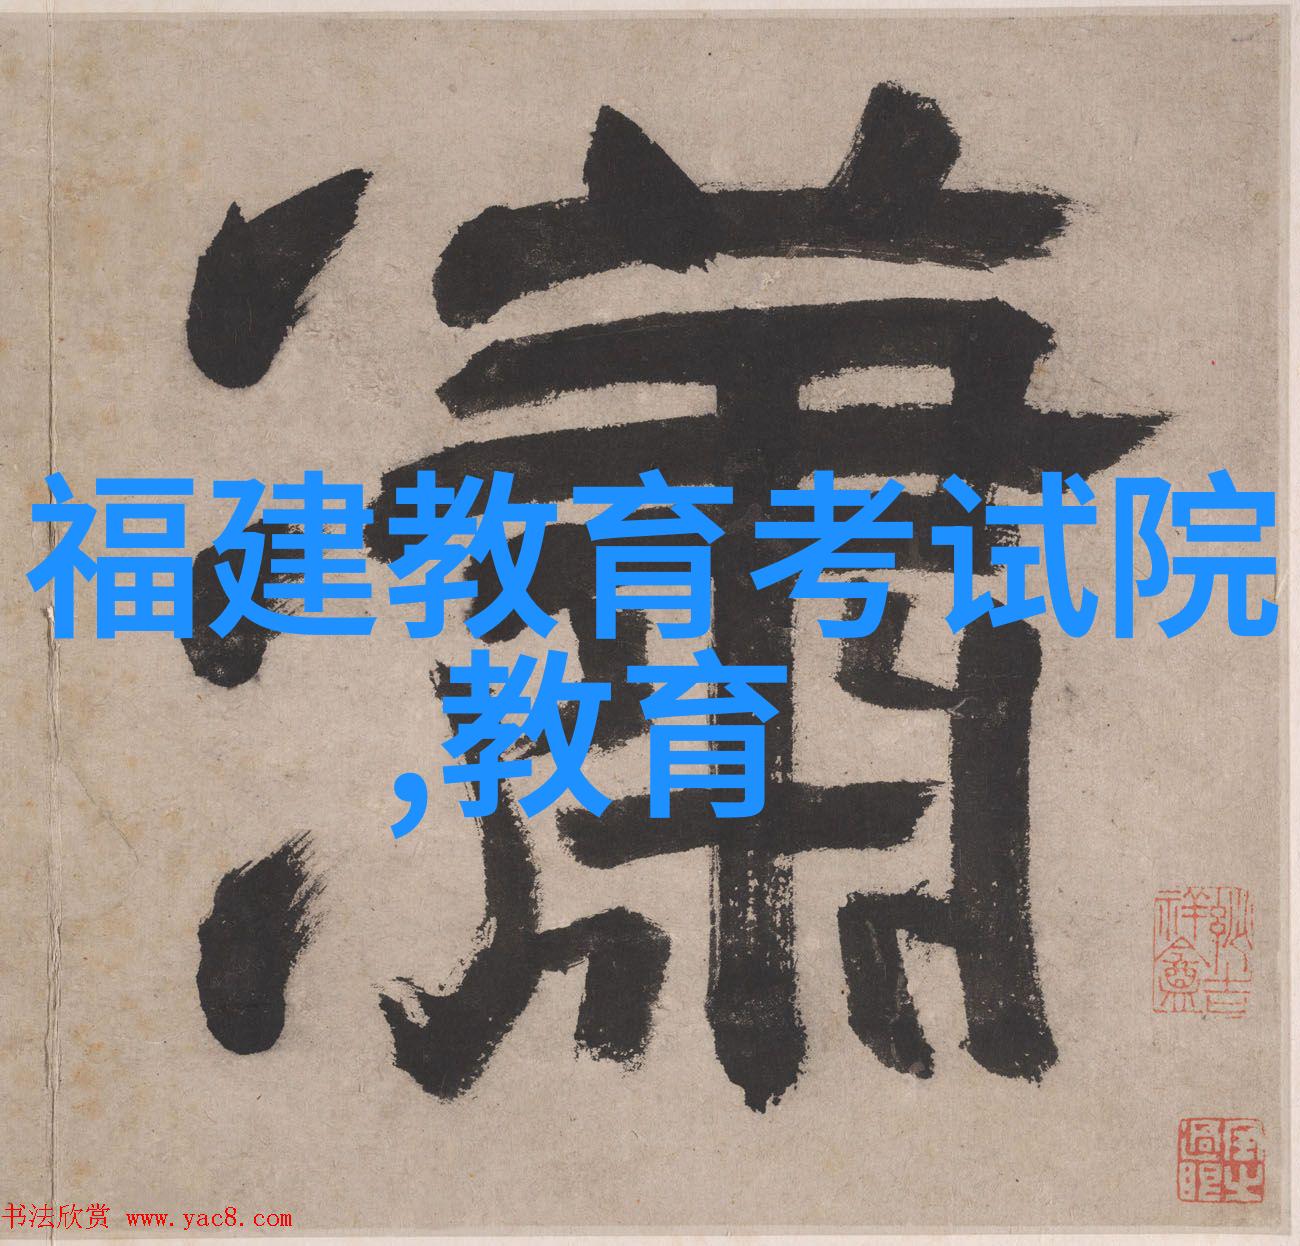 瀟
福建教育考试院
,教育
书法欣赏 www.yac8.com